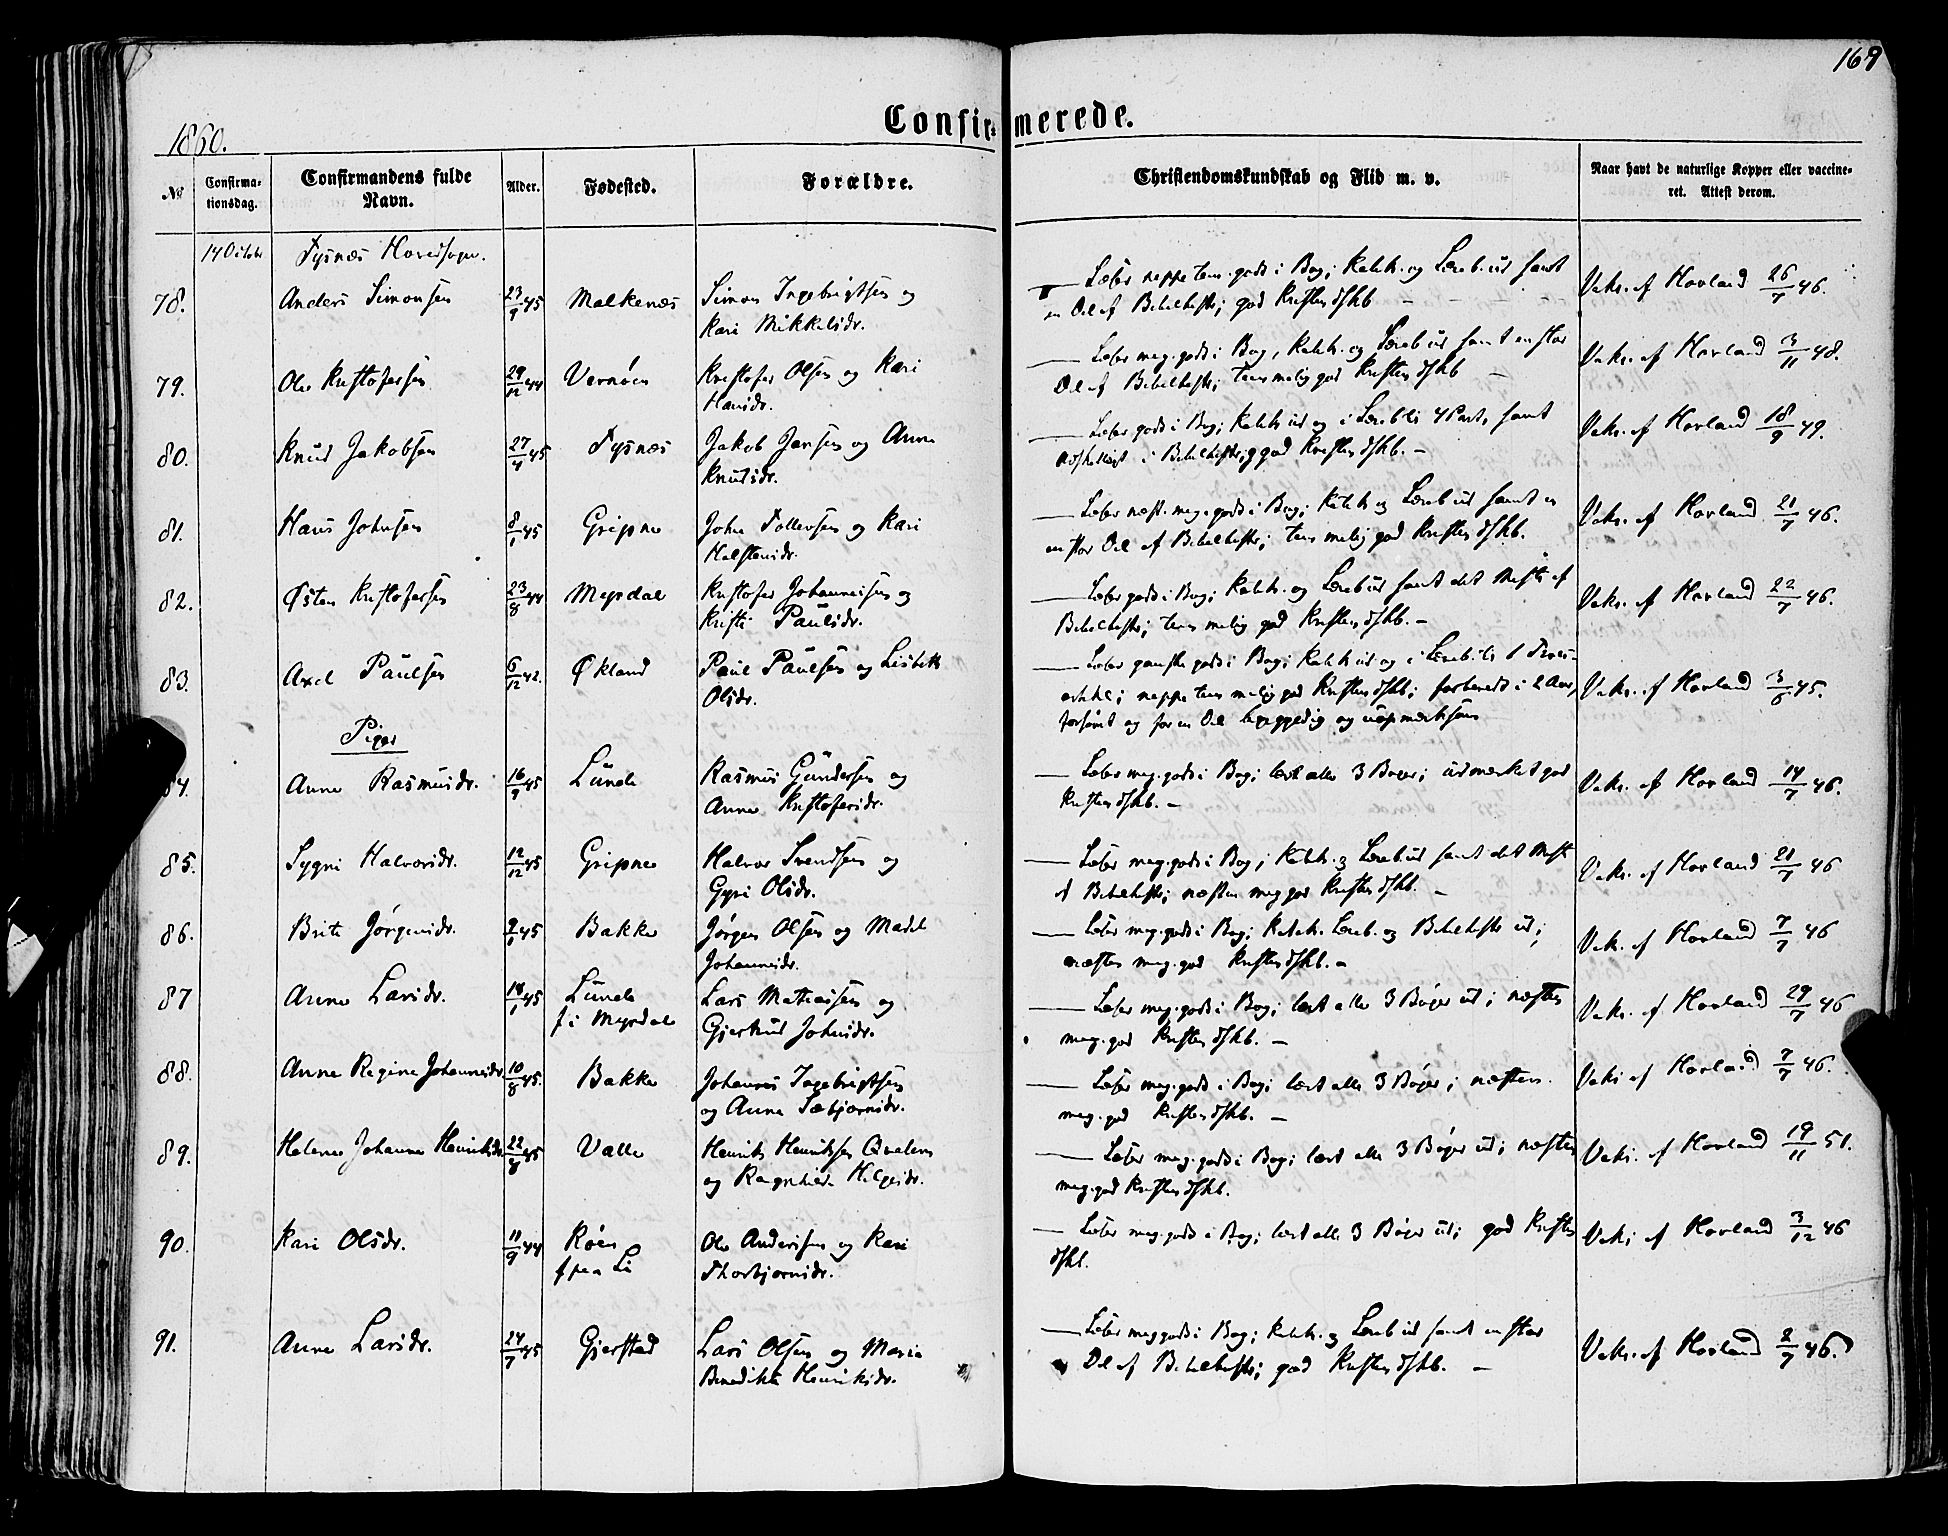 169
Confirmerede.
1860.
No
Confirma-
tionsdag.
Confirmandens fulde
Navn.
Alder.
Fødested.
Forældre.
Christendomskundskab og Flid m. v.
Naar havt de naturlige Kopper eller vaccine-
ret. Attest derom.
14 October Tysnæs Hovedsogn.
78. Anders Simonsen 23/9 45 Malkenæs Simon Ingebrigtsen og
Kari Mikkelsdr.
Læser neppe tem. godt i Bog; Katek. og Læreb. ud samt
en Del af Bibelhist; god Kristendskb
Vaks. af Hovland 26/7 46.
79. Ole Kristofersen 29/12 44 Vernøen Kristofer Olsen og Kari
Hansdr.
Læser meg. godt i Bog, Katek. og Læreb ud samt en stor
Del af Bibelhist; temmelig god Kristendskb
Vaks. af Hovland 3/11 48.
80. Knud Jakobsen 27/4 45 Tysnæs Jakob Jensen og Anna
Knutsdr.
Læser godt i Bog; Katek ud og i Læreb til 4 Part, samt
i Bibelhist; god Kristendskb.
Vaks. af Hovland 18/9 49.
81. Hans Johnsen 8/1 45 Gripne John Tollevsen og Kari
Halstensdr.
Læser næst. meg. godt i Bog; Katek og Læreb ud samt en
en stor Del af Bibelhist; temmelig god Kristendskb.
Vaks. af Hovland 21/7 46.
82. Østen Kristofersen 23/8 44 Myrdal Kristofer Johannesen og
Kristi Paulsdr.
Læser godt i Bog; Katek. og Læreb ud samt det Meste af
Bibelhist; temmelig god Kristendskb.
Vaks. af Hovland 22/7 46.
83. Axel Paulsen 6/12 42. Økland Paul Paulsen og Lisbeth
Olsdr.
Læser ganske godt i Bog; Katek ud og i Læreb. til 1 Troes-
artikl; neppe temmelig god Kristendskb; forberedt i 2 Aar,
forsømt og for en Del og uopmærksom
Vaks. af Hovland 3/6 45.
Piger
84. Anna Rasmusdr. 16/9 45 Lunde Rasmus Gundersen og
Anna Kristofersdr.
Læser meg. godt i Bog; lært alle 3 Bøger; udmærket god
Kristendskb.
Vaks. af Hovland 14/7 46.
85. Sygni Halvorsdr. 12/12 45 Gripne Halvor Svendsen og
Gyri Olsdr.
Læser meg. godt i Bog; Katek. og Læreb ud samt det Mest
af Bibelhist; næsten meg god Kristendskb.
Vaks. af Hovland 21/7 46
86. Brita Jørgensdr. 2/1 45 Bakke Jørgen Olsen og Madel
Johannesdr.
Læser meg. godt i Bog; Katek. Læreb. og Bibelhist ud;
næsten meg. god Kristendskb.
Vak. af Hovland 7/7 46
87 Anna Larsdr. 18/1 45 Lunde
f i Myrdal Lars Mathiassen og
Gjertrud Johnsdr.
Læser meg. godt i Bog; lært alle 3 Bøger ud; næsten
meg. god Kristendskb.
Vaks. af Hovland 29/7 46
88. Anna Regine Johannesdr. 10/8 45. Bakke Johannes Ingebrigtsen
og Anna Sæbjørnsdr.
Læser meg. godt i Bog; lært alle 3 Bøger; næsten
meg. god Kristendskb.
Vaks af Hovland 7/7 46.
89. Helene Johanna Henriksdr 22/8 45 Valle Henrik Henriksen Qvalen
og Ragnhild Helgesdr.
Læser meg. godt i Bog; lært alle 3 Bøger ud; næsten
meg. god Kristendskb.
Vaks. af Hovland 19/11 51.
90. Kari Olsdr. 11/9 44 Røen
f paa Li Ole Andersen og Kari
Thorbjørnsdr.
Læser meg. godt i Bog; lært alle 3 Bøger ud; god Kristen
dskb.
Vaks af Hovland 3/12 46
91. Anna Larsdr. 24/7 45 Gjerstad Lars Olsen og Maria
Benedikte Henriksdr.
Læser meg godt i Bog; Katek. og Læreb ud samt en stor
Del af Bibelhist; god Kristendskb.
Vaks. af Hovland 8/7 46.